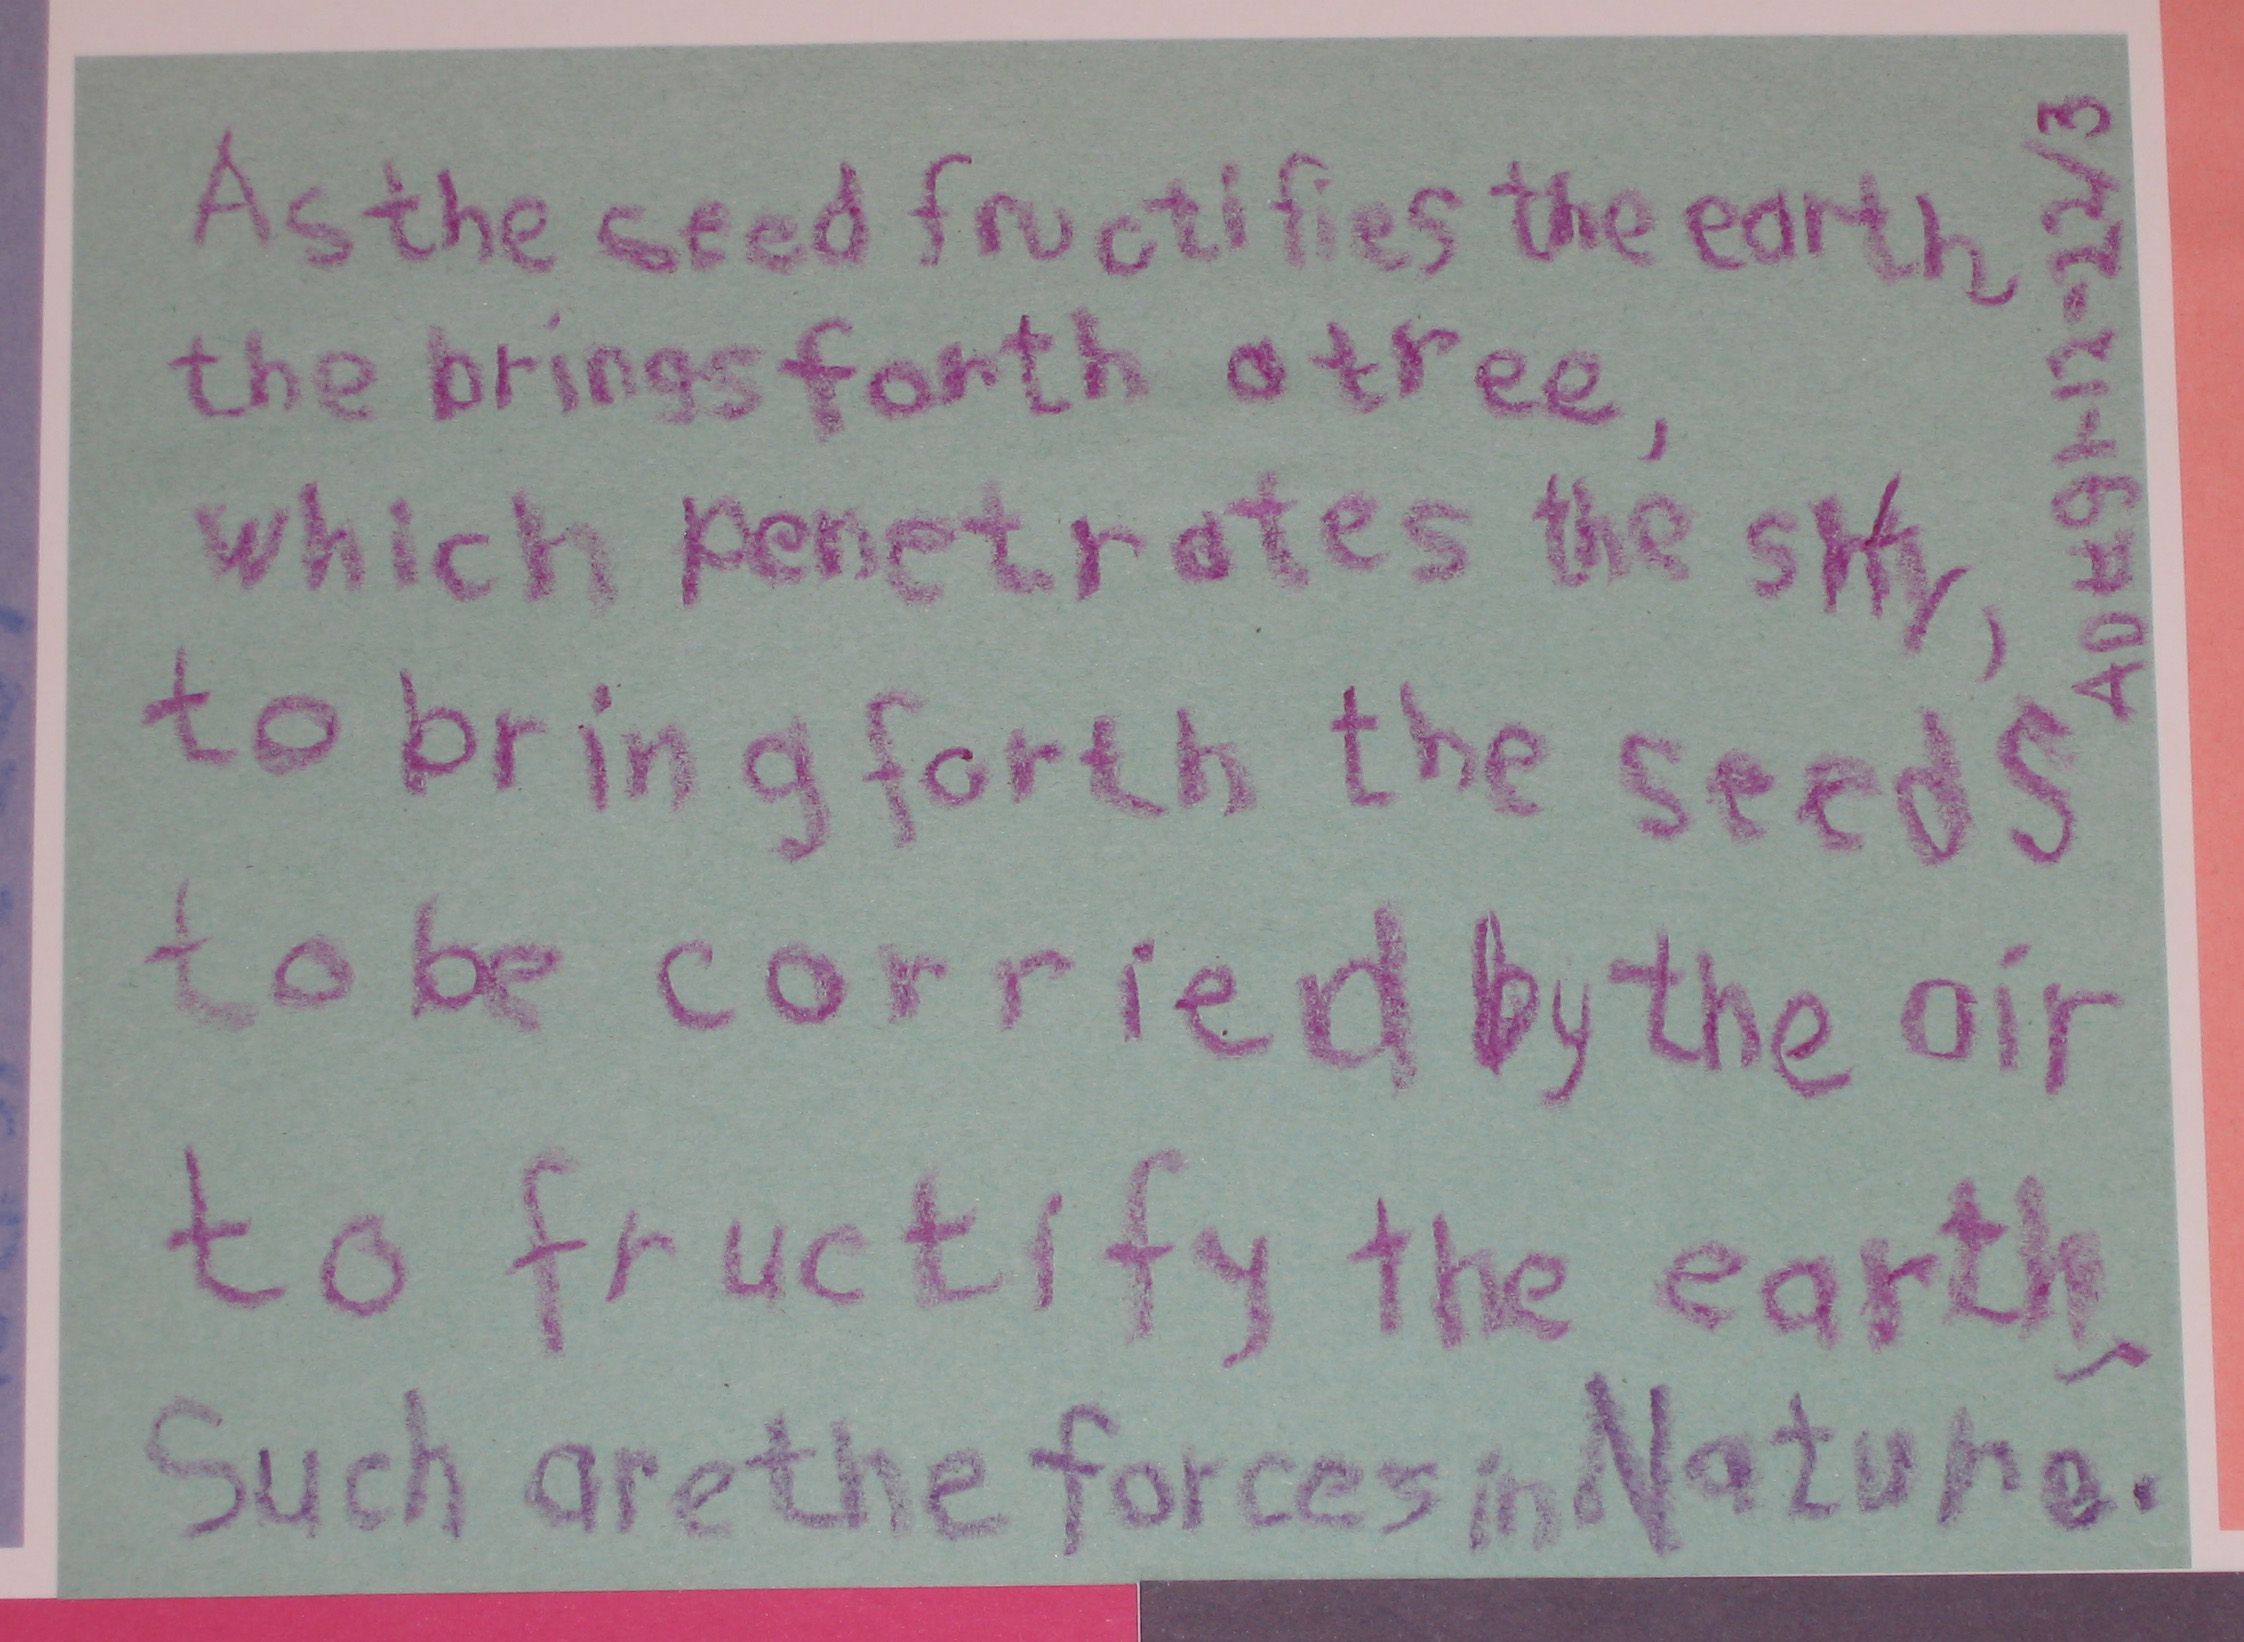 As the seed fructifies the earth
the brings forth a tree,
which penetrates the sky,
to bring forth the seeds
to be carried by the air
to fructify the earth,
Such are the forces in Nature.